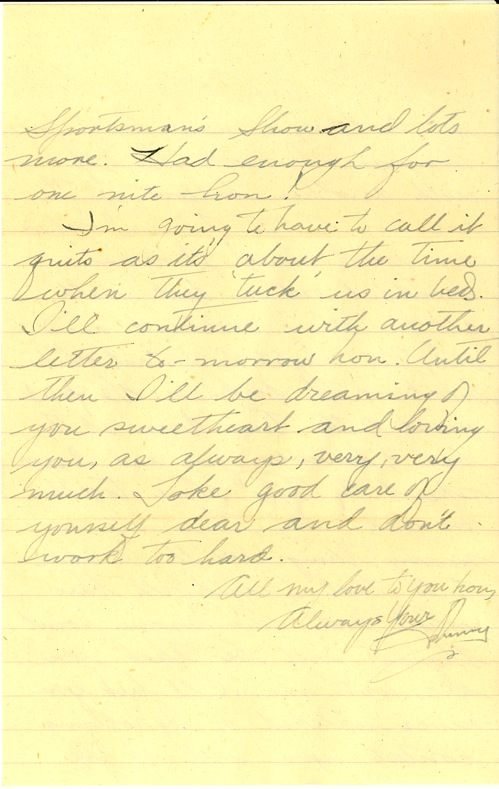 Sportsman's Show and lots
more. Had enough for
one nite hon!
I'm going to have to call it
quits as its about the time
when they 'tuck' us in bed.
I'll continue with another
letter to-morrow hon. Until
then I'll be dreaming of
you sweetheart and loving
you, as always, very, very
much. Take good care of
yourself dear and don't
work too hard.
All my love to you hon,
Always Your
Johnny